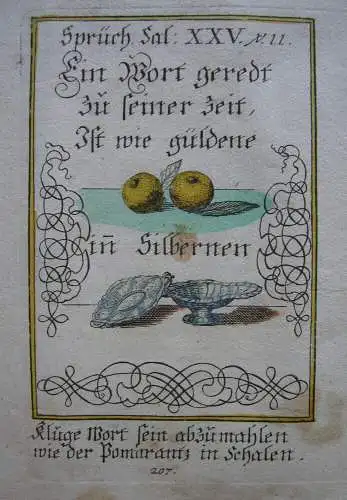 Sprüch. Sal: XXV. ℣. 11.
Ein Wort geredt
zü seiner zeit,
Ist wie güldene
in̄ Silbernen
Klüge Wort sein abzümahlen
wie der Pomarantz in Schalen.
207.